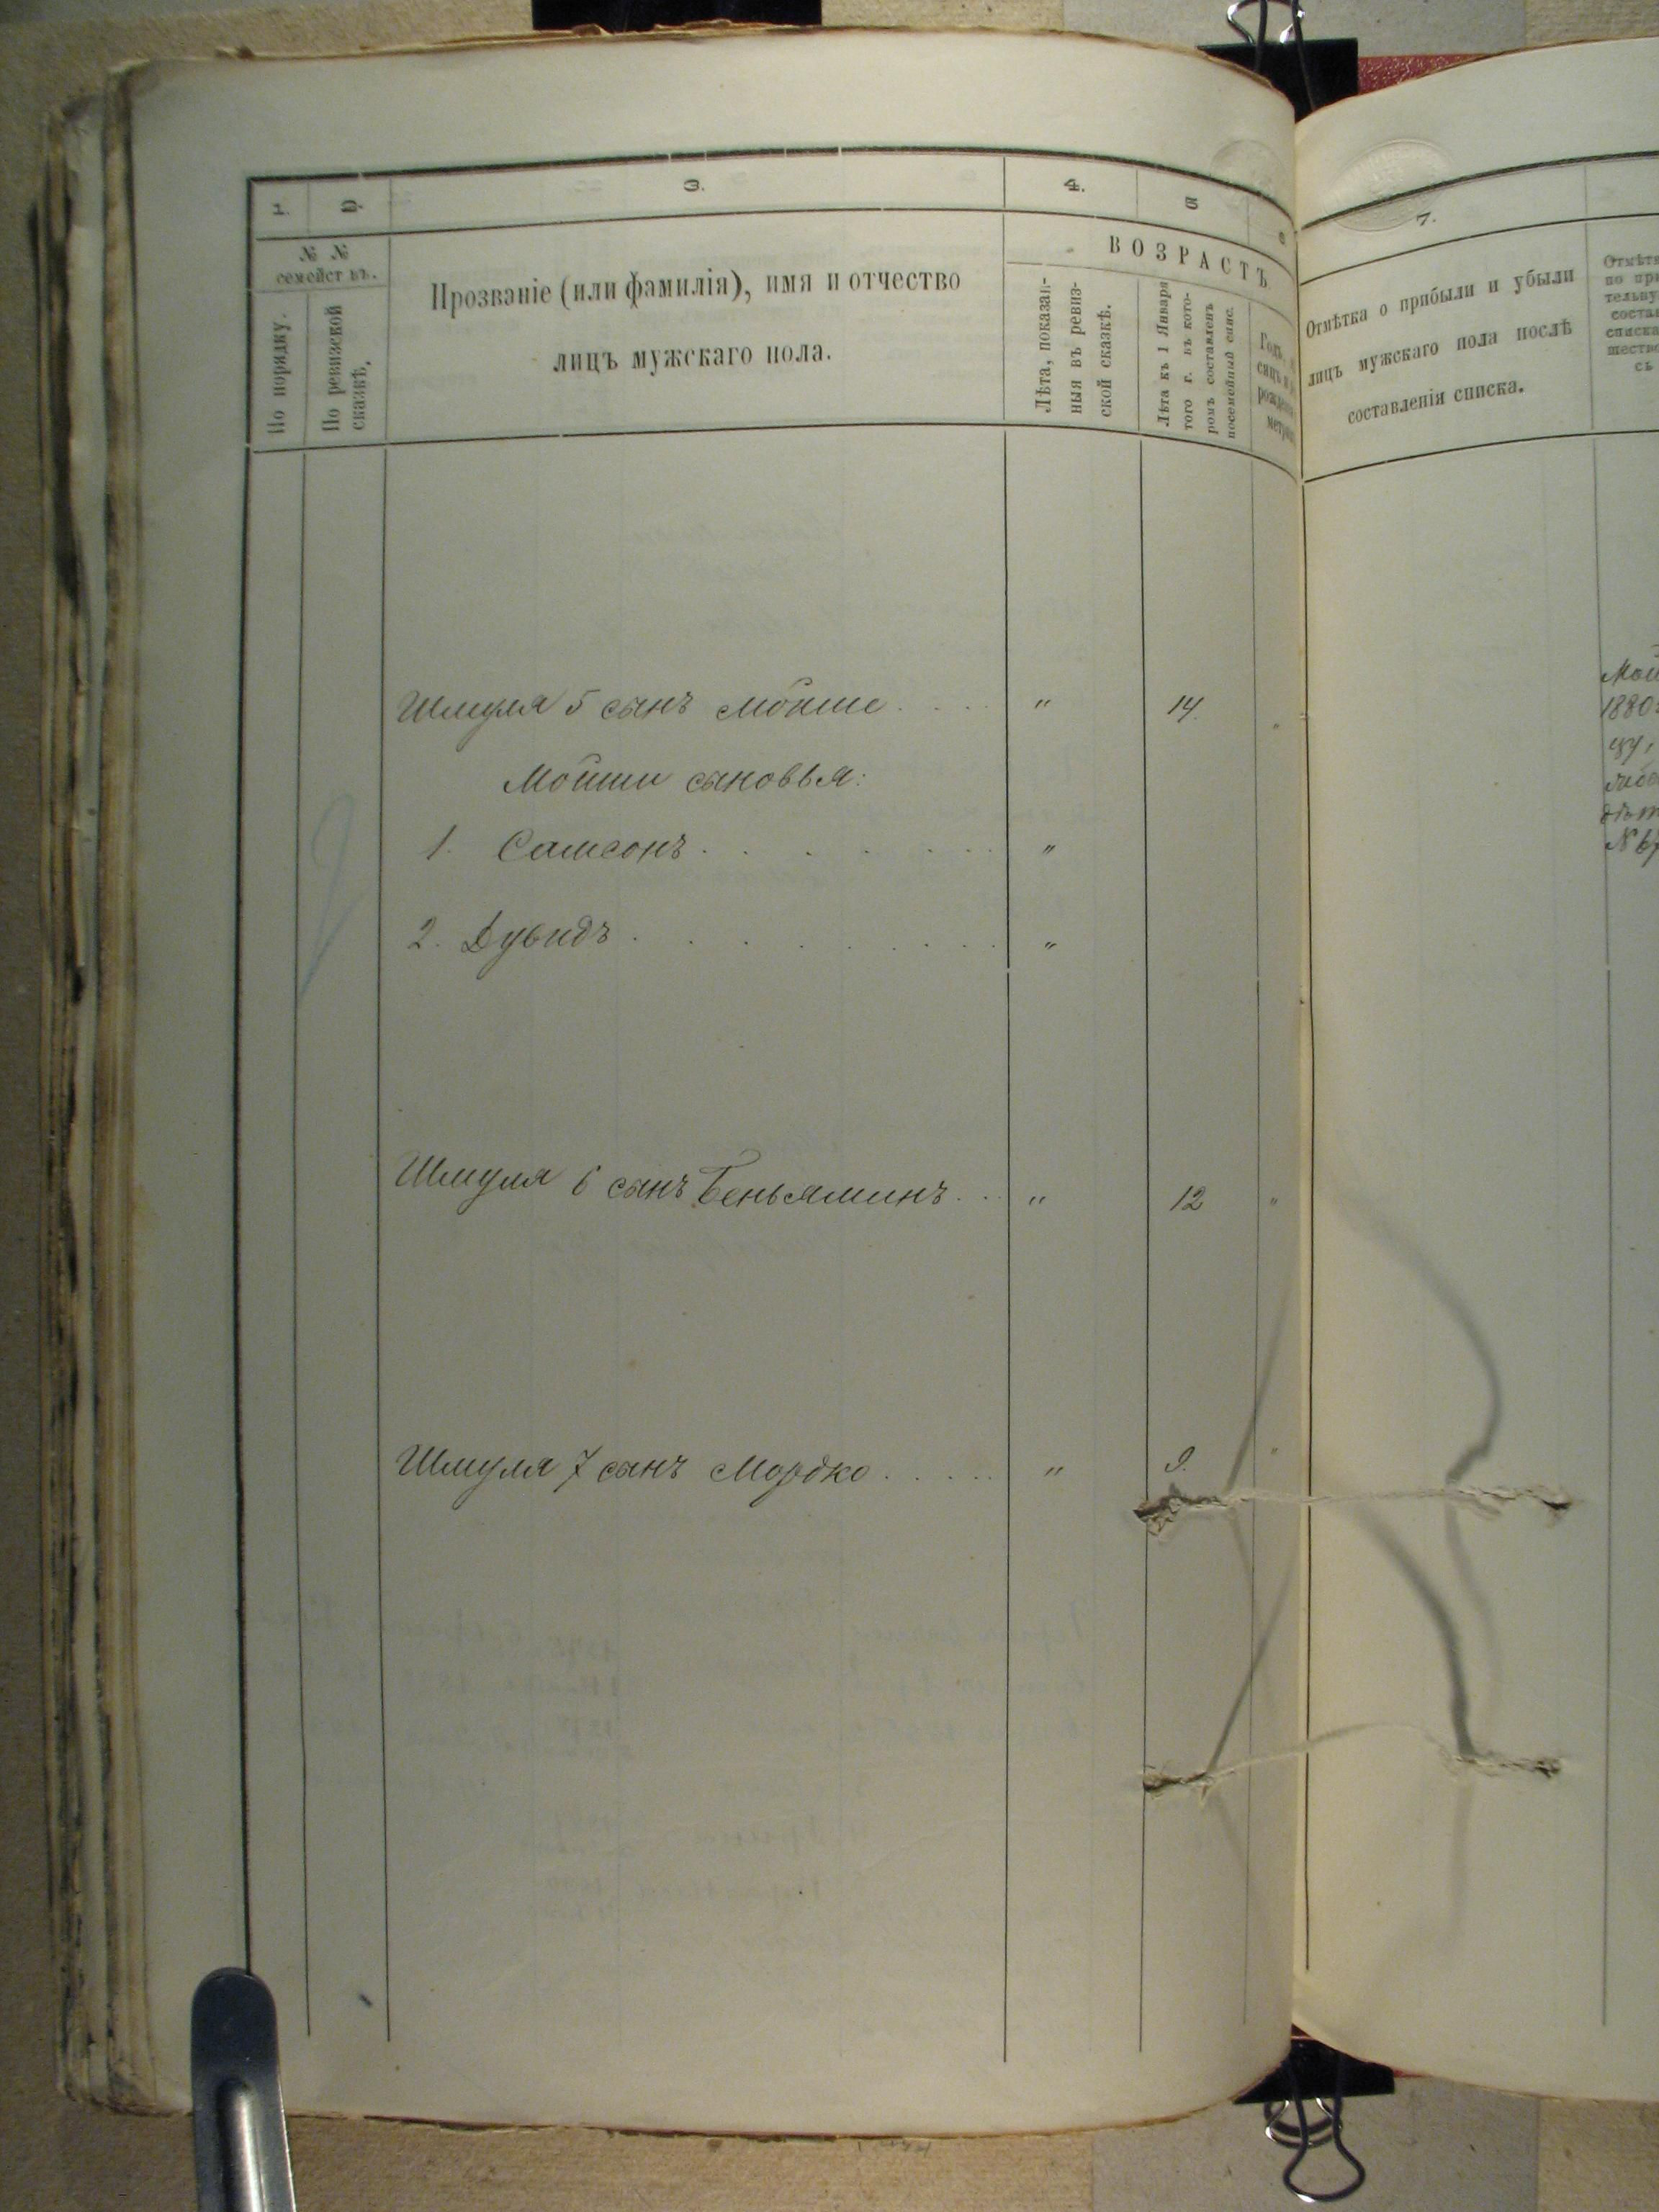 1. 2. 3. 4. 5 6
№ №
семействъ.
По порядку.
По ревизской
сказкѣ.
Прозваніе (или фамилія), имя и отчество
лицъ мужскаго пола.
ВОЗРАСТЪ.
Лѣта, показан-
ныя въ ревиз-
ской сказкѣ.
Лѣта къ 1 Января
того г. въ кото-
ромъ составленъ
посемейный спис.
Годъ,
Шмуля 5 сынъ Мойше . . . . " 14.
Мойши сыновья:
1. Самсонъ . . . . . . . "
2. Дувидъ . . . . . . . . "
Шмуля 6 сынъ Беньяминъ . . . " 12 "
Шмуля 7 сынъ Мордко . . . . . " 9. "
7.
Отмѣтка о прибыли и убыли
лицъ мужскаго пола послѣ
составленія списка.
Отмѣтк
по при
тельну
состав
списка
шество
сь
Мой
1880